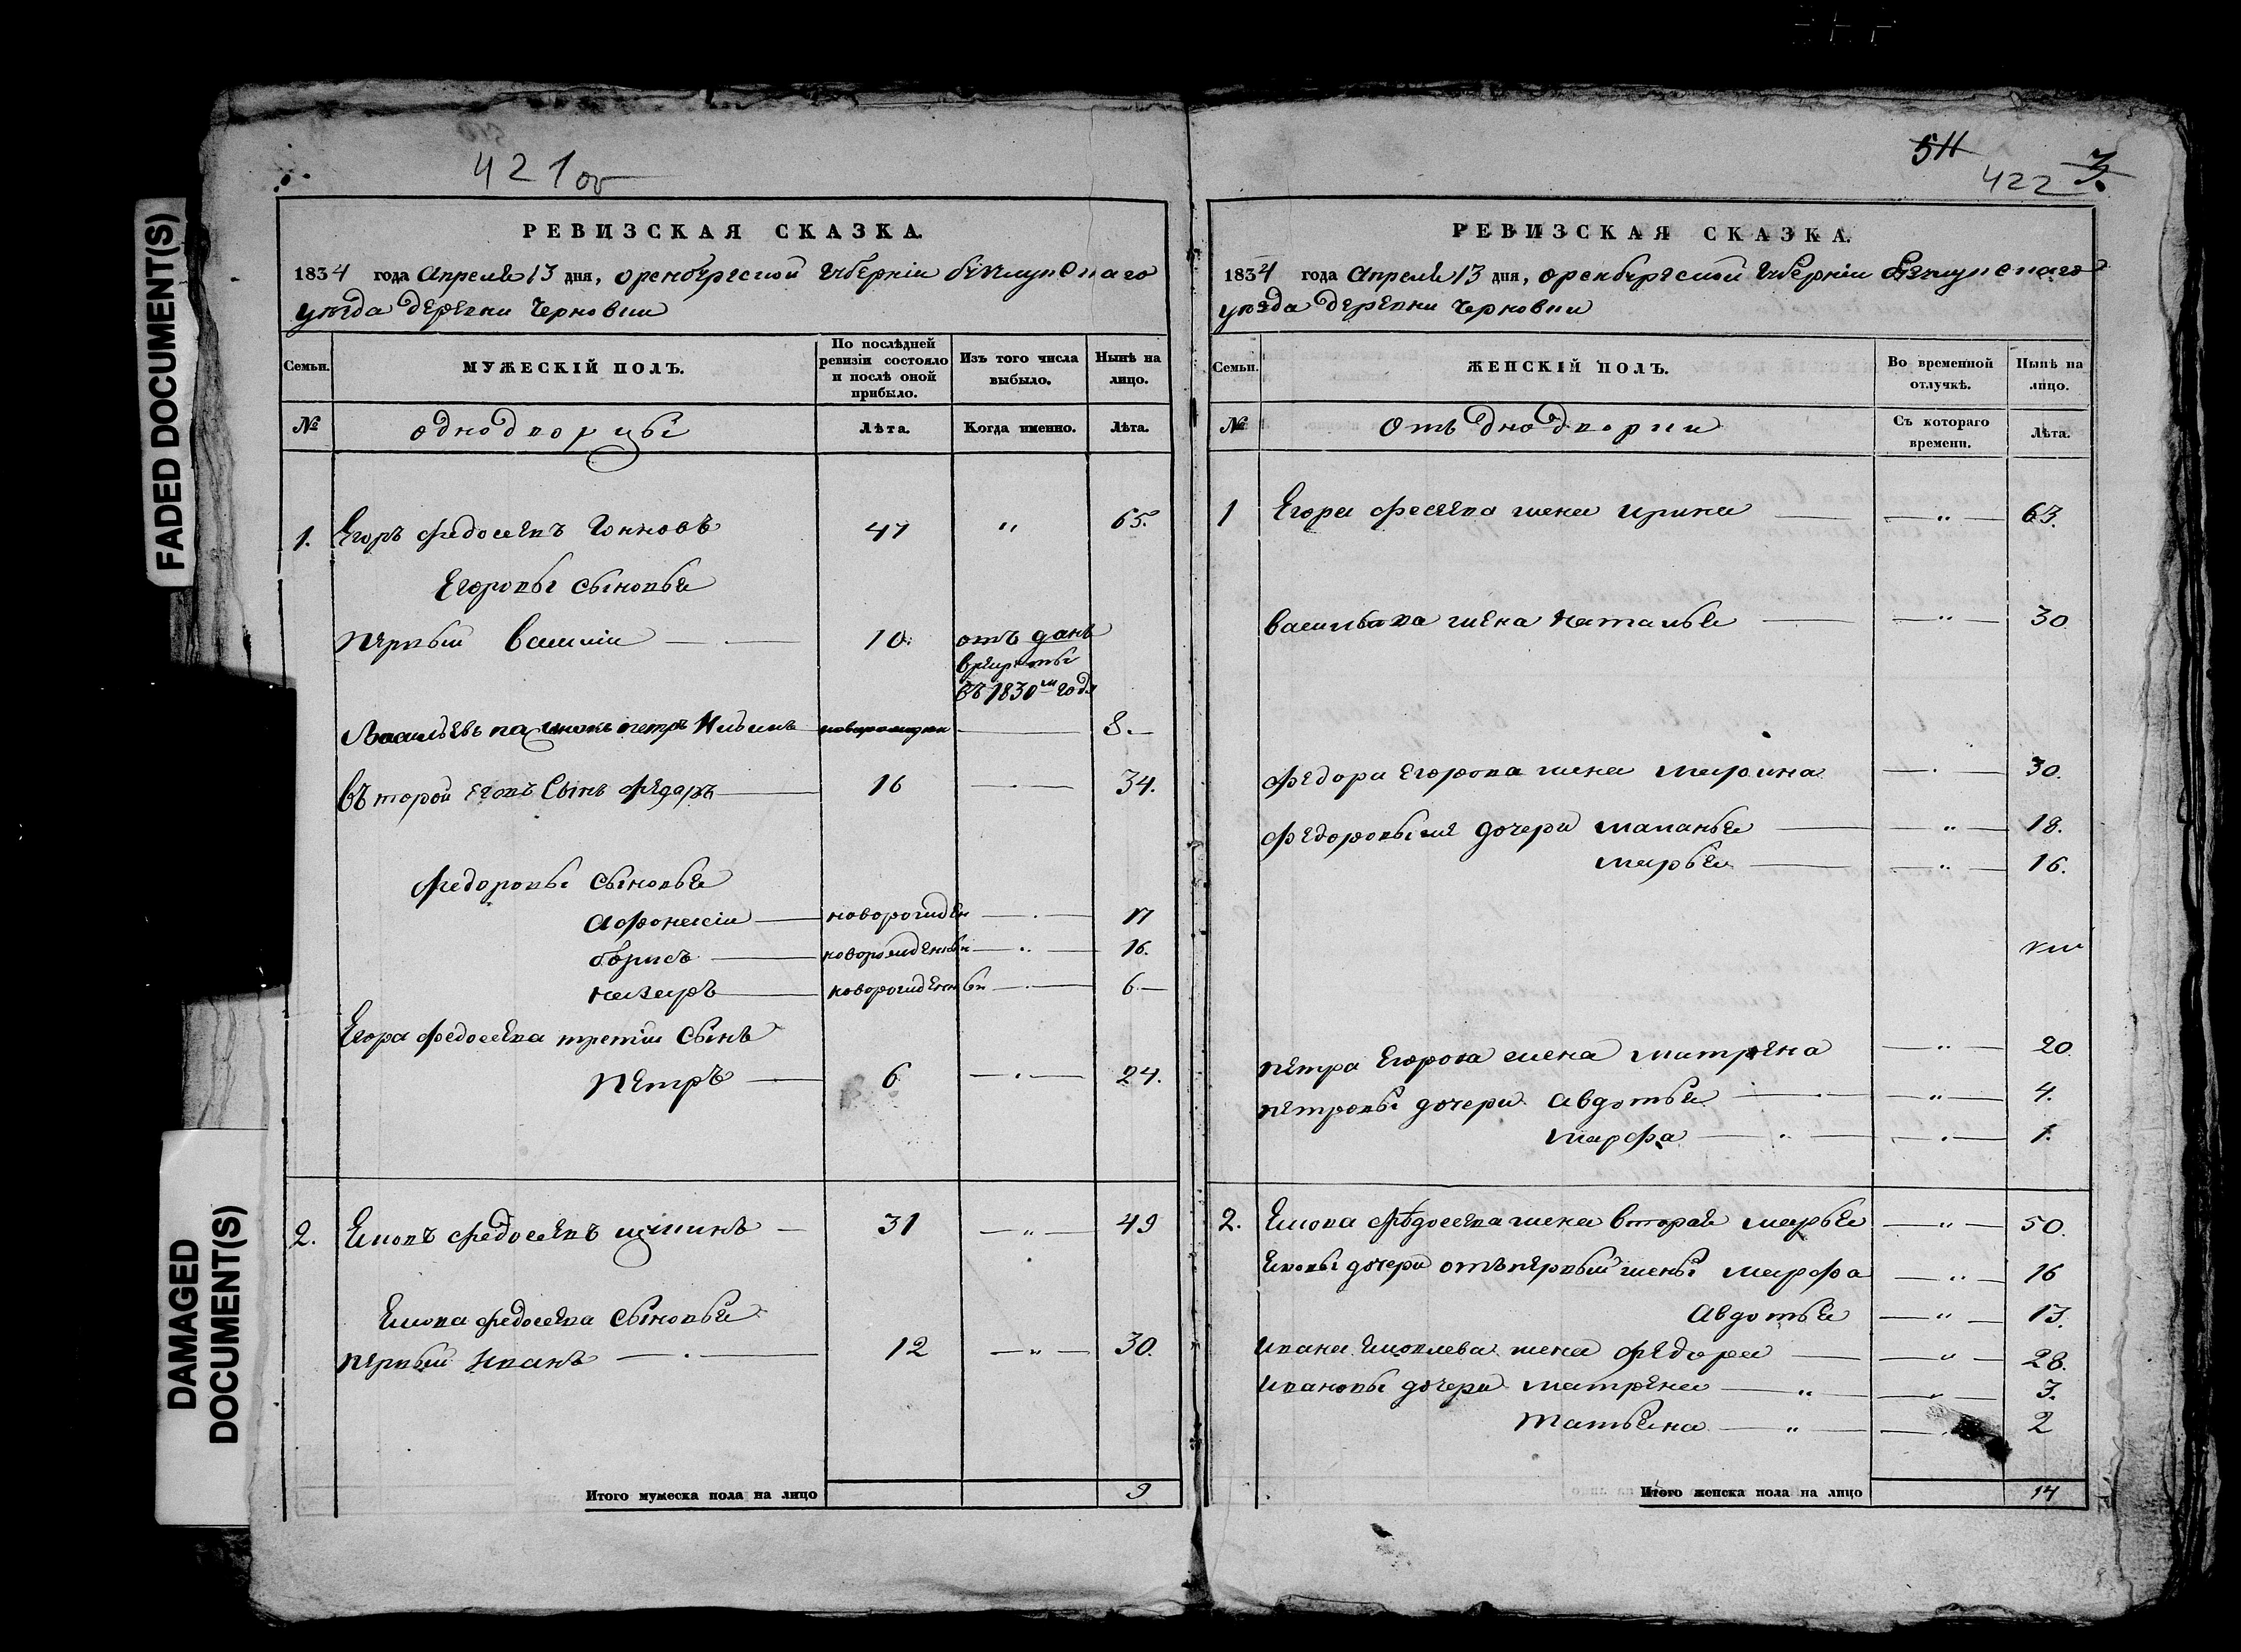 FADED DOCUMENT(S)
DAMAGED
DOCUMENT(S)
421об
РЕВИЗСКАЯ СКАЗКА.
1834 года Апреля 13 дня, оренбургской губерніи
уезда деревни Черновки
Семьи.
МУЖЕСКІЙ ПОЛЪ.
По послѣдней ревизіи состояло и послѣ оной прибыло.
Изъ того числа выбыло.
Нынѣ на лицо.
№
однодворцы
Лѣта.
Когда именно.
Лѣта.
1. Егоръ федосеевъ 47 " 65.
Егоровы сыновья
первый василий 10. отъ данъ
врекруты
въ 1830м годе
8.
въторой егоръ Сынъ федаръ 16 34.
федоровы сыновья
Афонасіи новорожден 17
борисъ новорожденны 16.
назаръ новорожденны 6
Егора федосеева третіи сынъ
петръ 6 24.
2. федосеевъ 31 " 49
федосеева сыновья
первый иванъ 12 " 30.
Итого мужеска пола на лицо 9
511
422 3.
РЕВИЗСКАЯ СКАЗКА.
1834 года Апреля 13 дня, оренбургской губерніи
уезда деревни Черновки
Семьи.
ЖЕНСКІЙ ПОЛЪ.
Во временной отлучкѣ.
Нынѣ на лицо.
№
Съ котораго времени.
Лѣта.
1 Егора жена ирина " 63.
васильева жена наталья " 30
федора егорова жена марина 30.
дочери маланья " 18.
марья " 16.
петра егорова жена матрена " 20
петровы дочери авдотья " 4.
марфа 1.
2. федосеева жена вторая марья " 50.
дочери отъ первый жены марфа " 16
авдотья " 13.
ивана жена федора " 28.
ивановы дочери матрена " " 3.
татьяна " 2
Итого женска пола на лицо 14